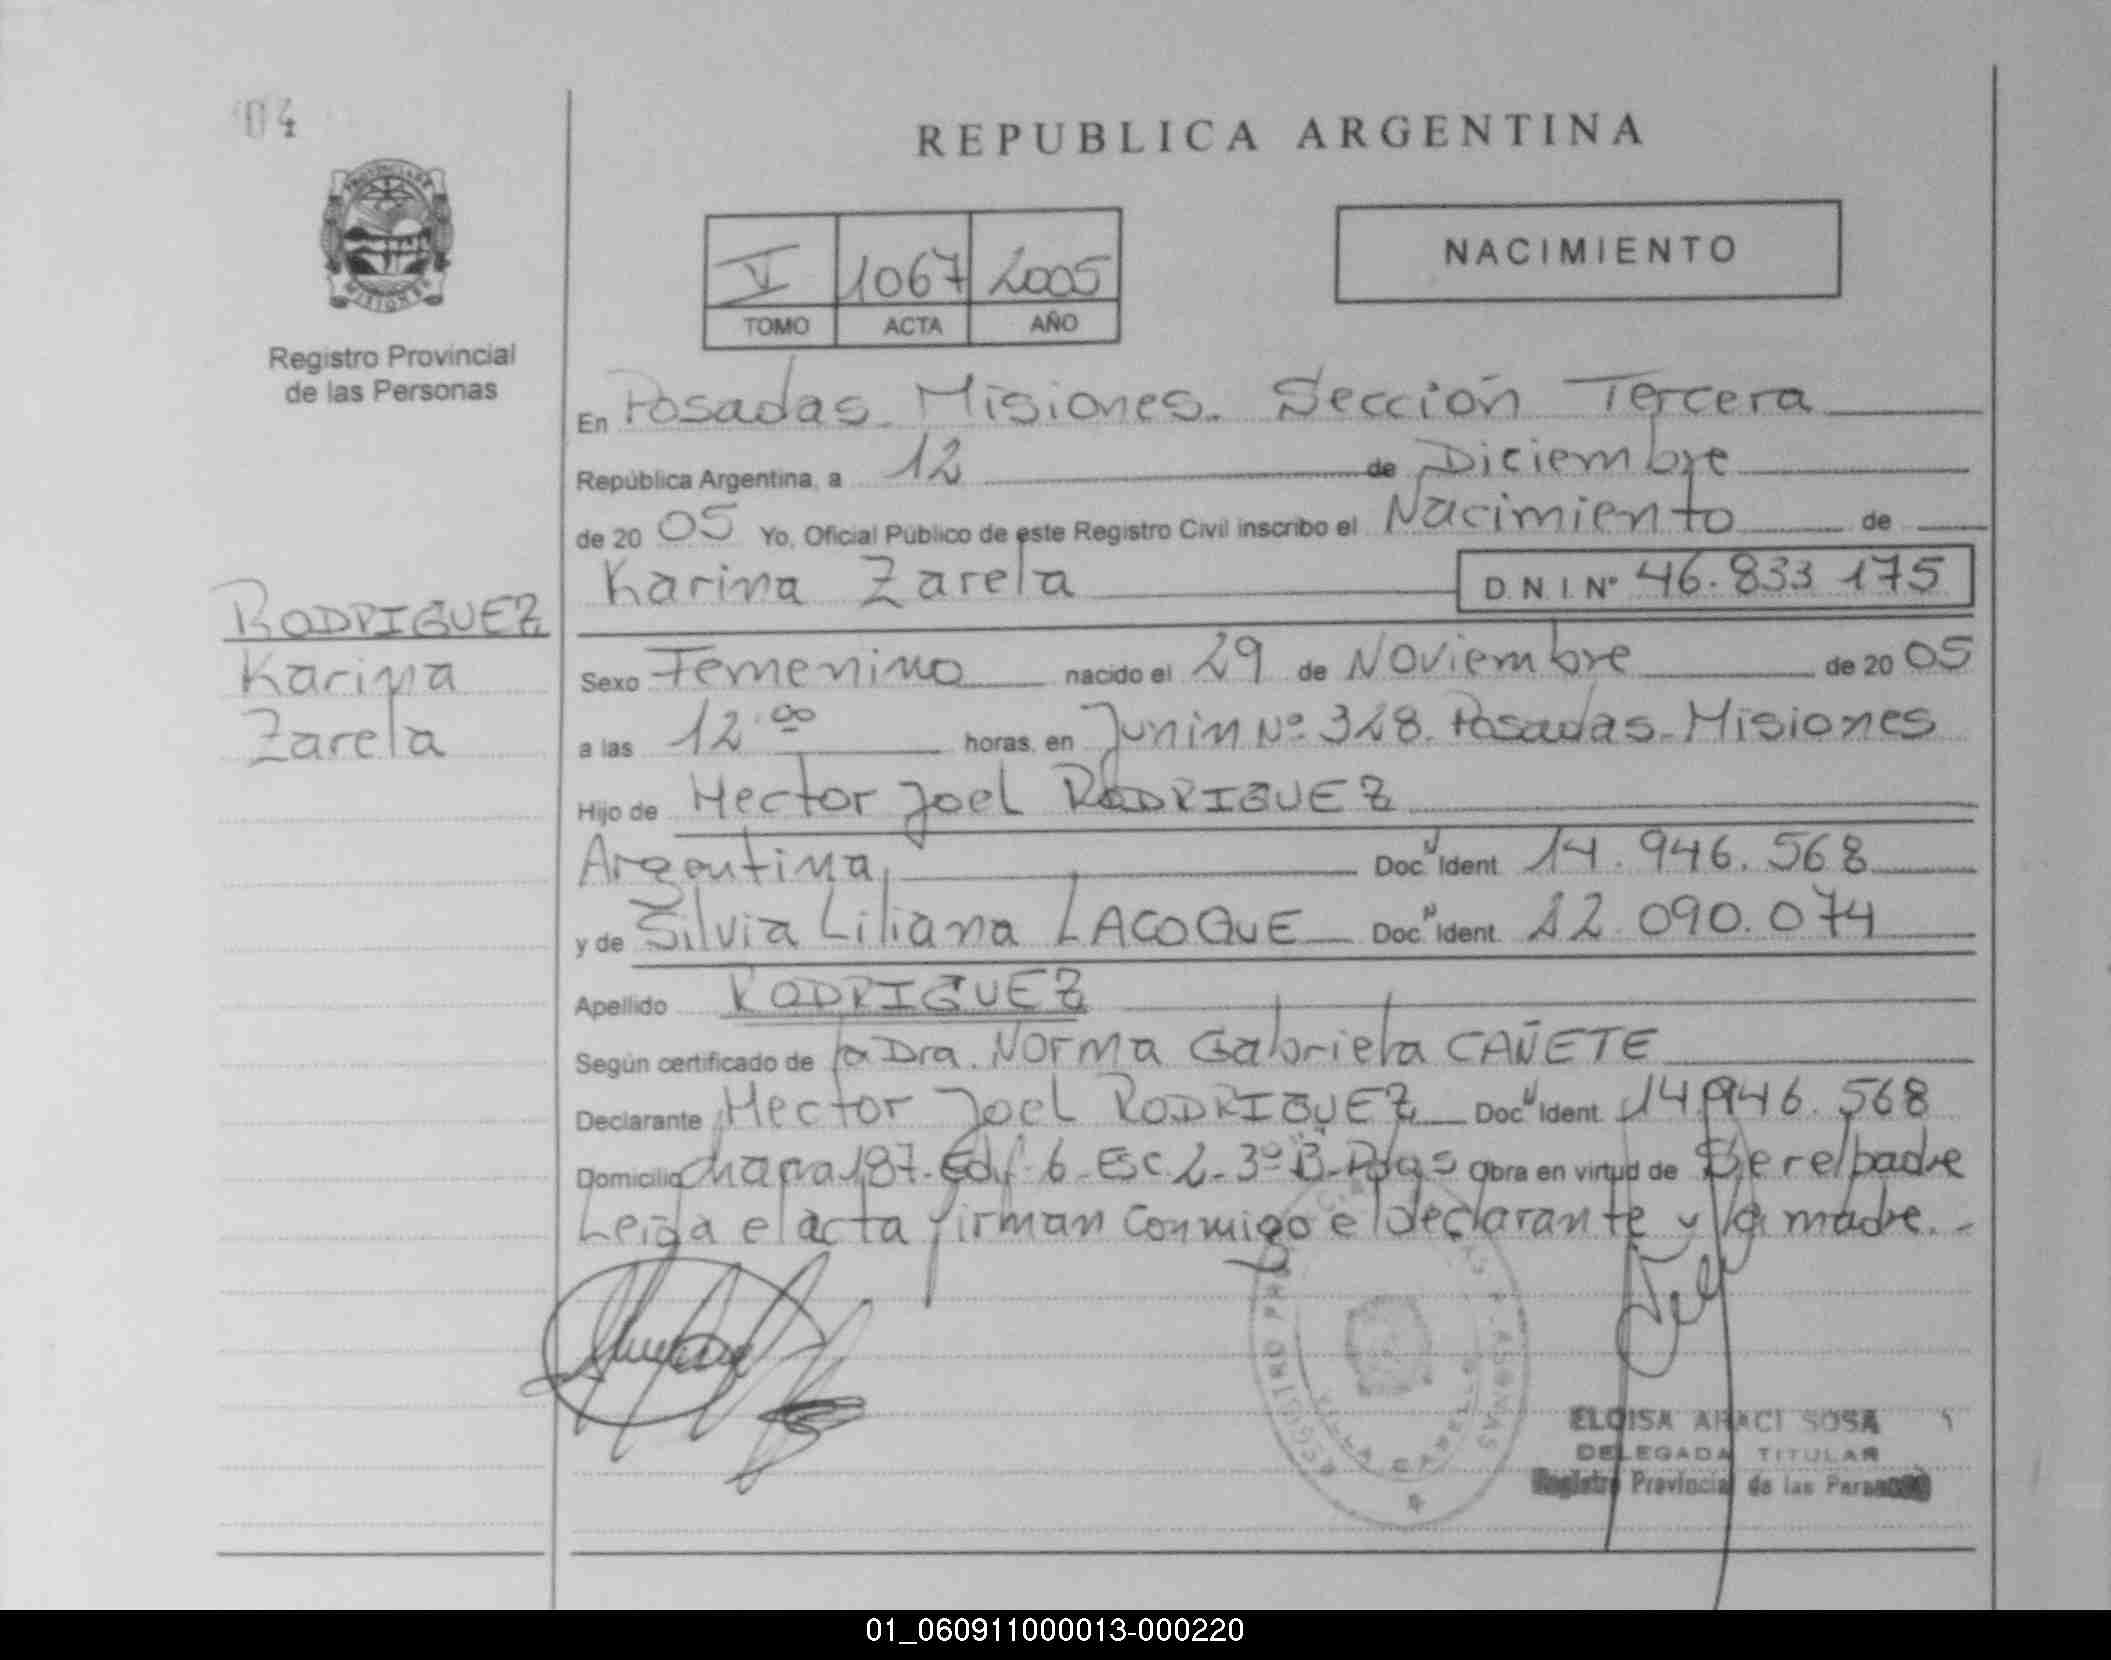 04
REPUBLICA ARGENTINA
V 1067 2005
TOMO ACTA AÑO
NACIMIENTO
PROVINCIA DE
MISIONES
Registro Provincial
de las Personas
En Posadas - Misiones. Sección Tercera
República Argentina, a 12 de Diciembre
de 20 05 Yo, Oficial Público de este Registro Civil inscribo el Nacimiento de
Karina Zarela D.N.I.Nº 46.833 175
RODRIGUEZ
Karina
Zarela
Sexo Femenino nacido el 29 de Noviembre de 20 05
a las 12:00 horas, en Junin Nº 328. Posadas - Misiones
Hijo de Hector Joel RODRIGUEZ
Argentina Doc. Ident. 14.946.568
y de Silvia Liliana LACOQUE Doc. Ident. 12.090.074
Apellido RODRIGUEZ
Según certificado de la Dra. Norma Gabriela CAÑETE
Declarante Hector Joel RODRIGUEZ Doc. Ident. 14.946.568
Domicilio chacra 187 - Edif. 6 - Esc. 2 - 3º B - Pdas Obra en virtud de Ser el padre
Leida el acta firman conmigo el declarante y la madre. -
ELOISA ARACI SOSA
DELEGADA TITULAR
Registro Provincial de las Personas
01_060911000013-000220